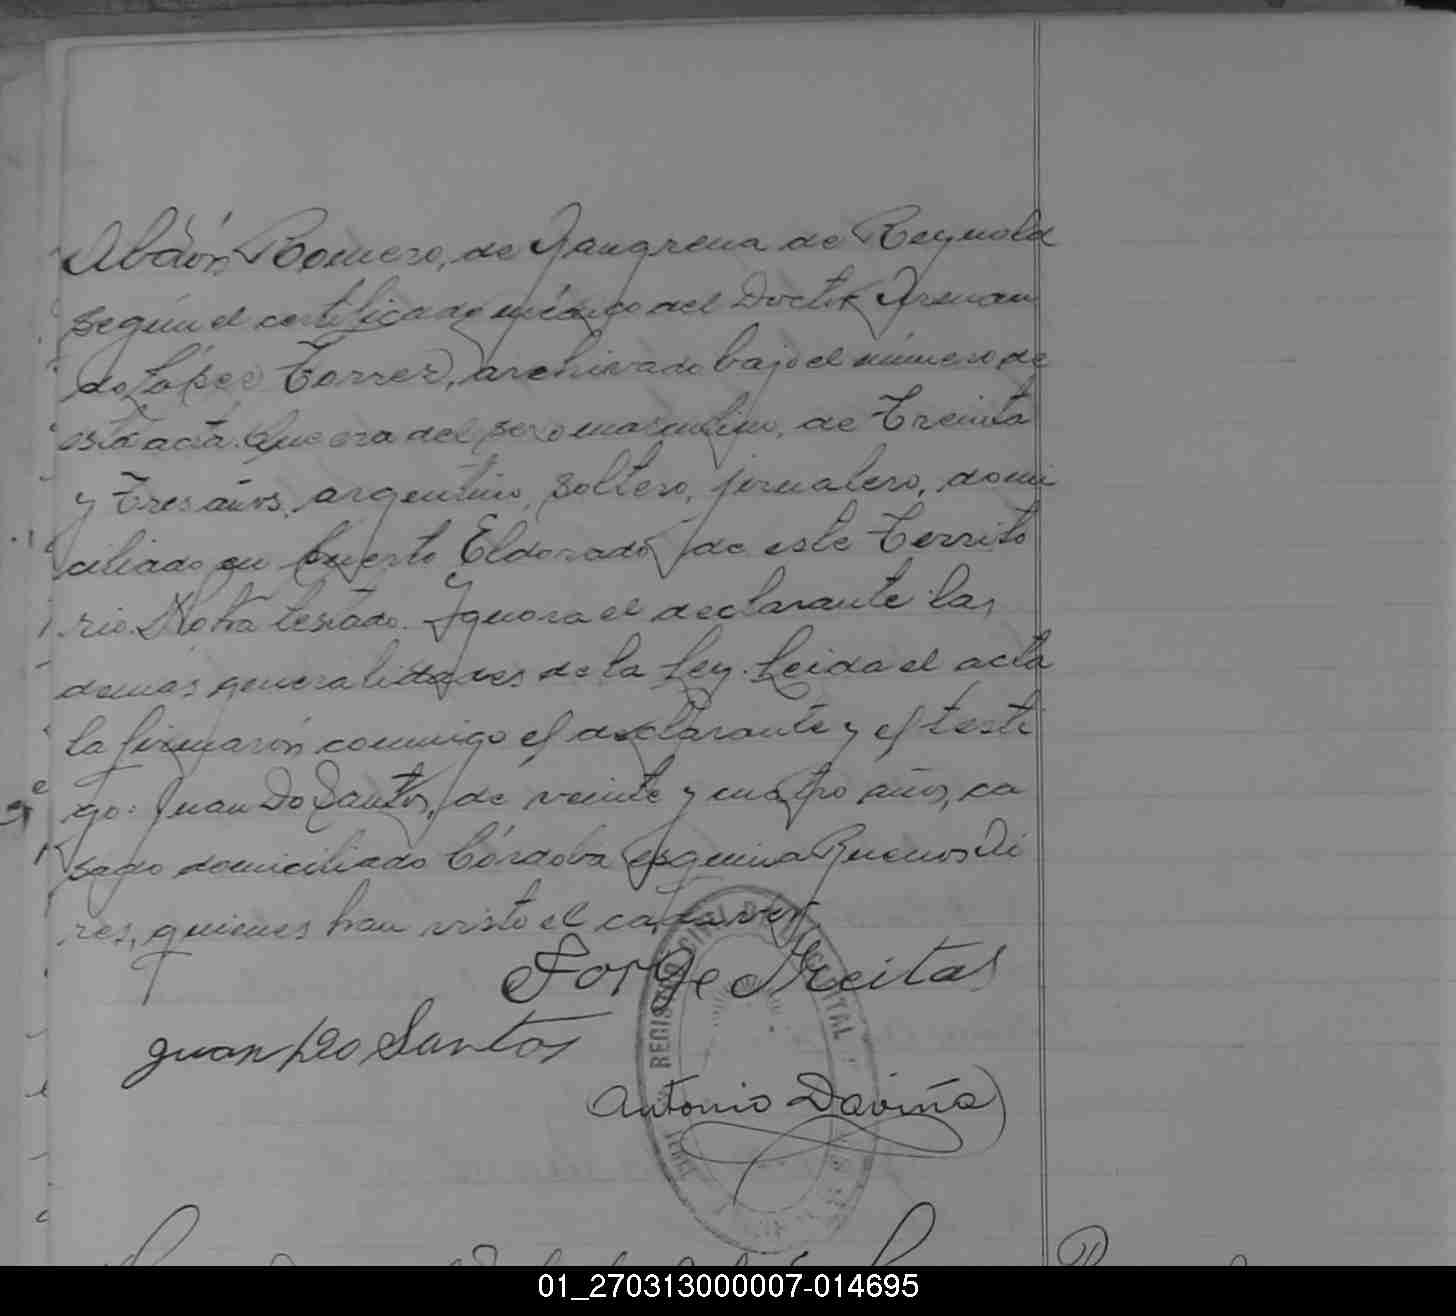 Abdón Romero, de Gangrena de Reynold
según el certificado médico del Doctor Arman
do López Torres, archivado bajo el número de
esta acta. Que era del sexo masculino, de Treinta
y Tres años, argentino, soltero, jornalero, domi
ciliado en Puerto Eldorado de este Territo
rio. No ha testado. Ignora el declarante las
demás generalidades de la Ley. Leida el acta
la firmarón conmigo el declarante y el testi
go: Juan Do Santos, de veinte y cuatro años, ca
sado domiciliado Córdoba esquina Buenos Ai
res, quienes han visto el cadaver.
Jorge Freitas
Juan Do Santos
Antonio Daviña
REGISTRO CIVIL DE CAPITAL
01_270313000007-014695